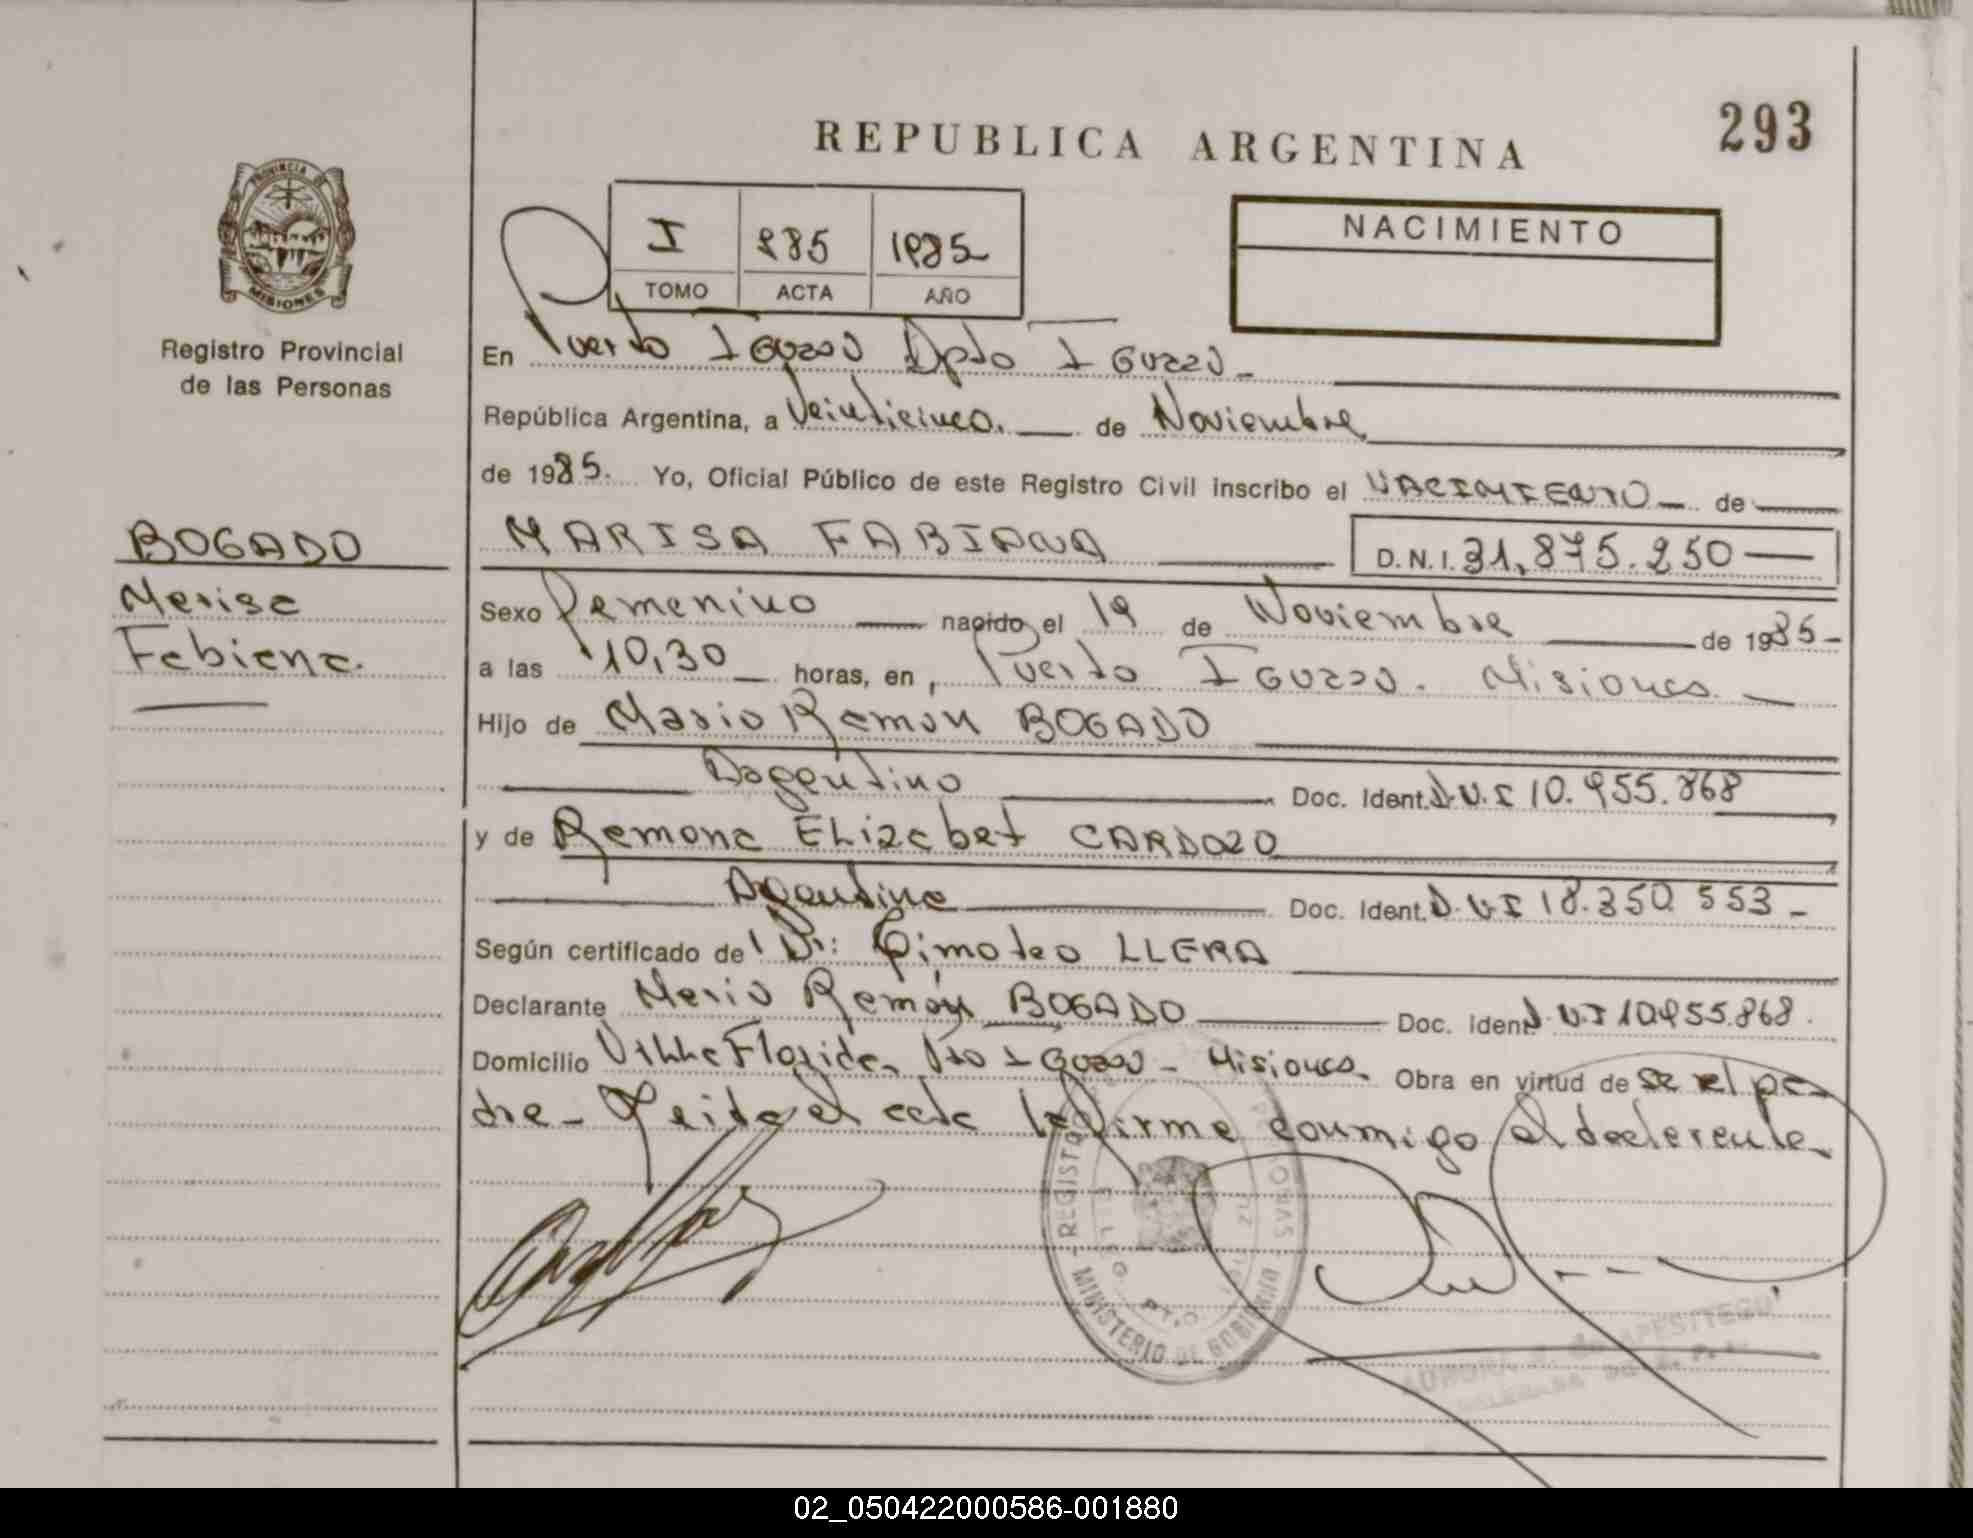 293
REPUBLICA ARGENTINA
PROVINCIA DE
MISIONES
Registro Provincial
de las Personas
I 285 1985
TOMO ACTA AÑO
NACIMIENTO
En Puerto Iguazú Dpto Iguazú
República Argentina, a Veinticinco. de Noviembre
de 1985. Yo, Oficial Público de este Registro Civil inscribo el NACIMIENTO de
BOGADO
Marisa
Fabiana.
MARISA FABIANA D.N.I. 31.875.250
Sexo Femenino nacido el 19 de Noviembre de 1985
a las 10,30 horas, en Puerto Iguazú. Misiones
Hijo de Mario Ramón BOGADO
Argentino Doc. Ident. D.N.I 10.955.868
y de Ramona Elizabet CARDOZO
Argentina Doc. Ident. D.N.I 18.350.553
Según certificado del Dr: Timoteo LLERA
Declarante Mario Ramón BOGADO Doc. Ident D.N.I 10.955.868.
Domicilio Villa Florida, Pto Iguazú - Misiones. Obra en virtud de ser el pa-
dre - Leida el acta la firma conmigo el declarante
REGISTRO PERSONAS
MINISTERIO DE GOBIERNO
PTO.
02_050422000586-001880